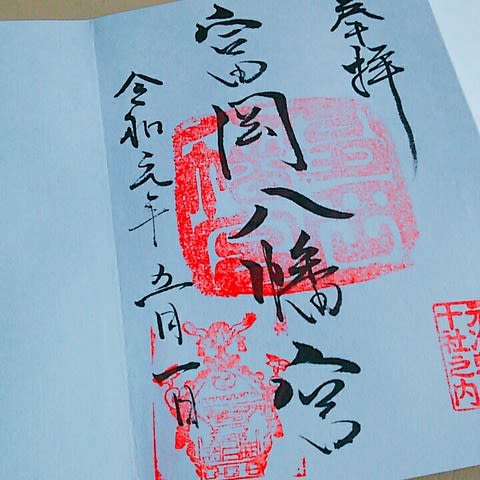 奉拝
富岡八幡宮
令和元年五月一日
十社之内